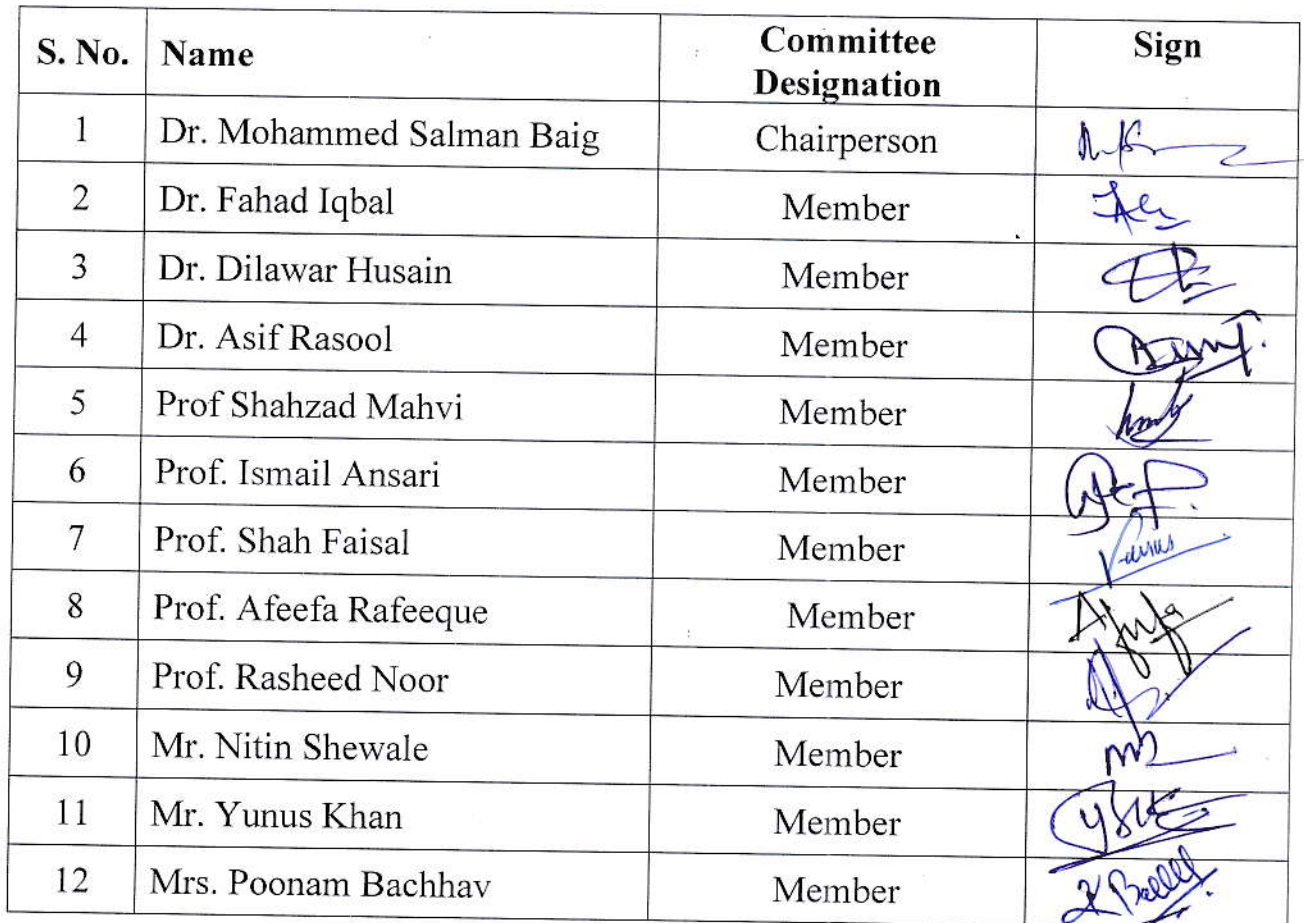 S. No. Name Committee Designation Sign
1 Dr. Mohammed Salman Baig Chairperson
2 Dr. Fahad Iqbal Member
3 Dr. Dilawar Husain Member
4 Dr. Asif Rasool Member
5 Prof Shahzad Mahvi Member
6 Prof. Ismail Ansari Member
7 Prof. Shah Faisal Member
8 Prof. Afeefa Rafeeque Member
9 Prof. Rasheed Noor Member
10 Mr. Nitin Shewale Member
11 Mr. Yunus Khan Member
12 Mrs. Poonam Bachhav Member